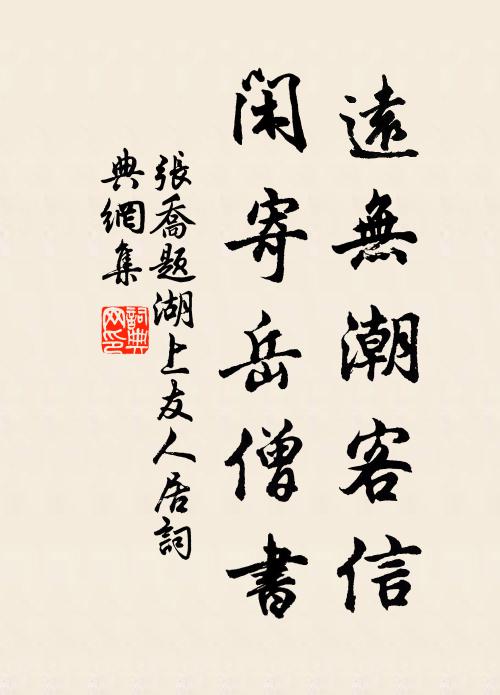 遠無潮客信
閑寄岳僧書
張喬題湖上友人居詞
典網集
詞典网印